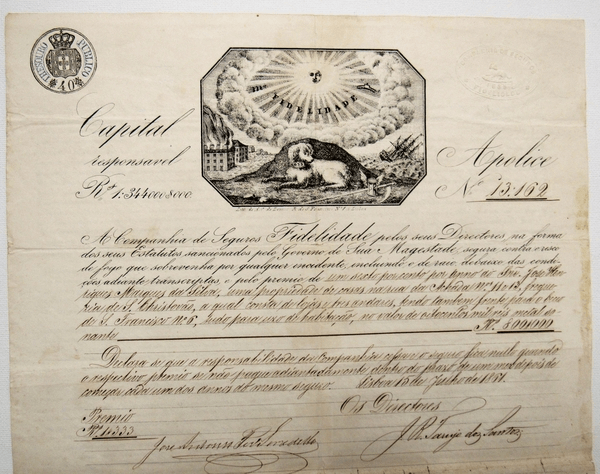 THESOURO PUBLICO
40
FIDELIDADE
Capital
responsavel
Rs. 1:344000$000.
Apolice
No. 13:162
A Companhia de Seguros Fidelidade pelos seus Directores, na forma
dos seus Estatutos sanccionados pelo Governo de Sua Magestade, segura contra o risco
de fogo que sobrevenha por qualquer incidente, incluindo o de raio, debaixo das condi-
ções adiante transcriptas, e pelo premio de um sexto por cento por anno ao Snr. José Hen-
riques Marques da Silva, uma propriedade de casas na rua do No. 11 a 13, fregue-
zia de S. Christovão, a qual consta de lojas, e tres andares, tendo tambem frente para o
de S. Francisco No. 6, tudo para uso de habitação, no valor de oitocentos mil réis, metal so-
nante Rs. 800$000
Declara-se que a responsabilidade da Companhia cessa e o seguro fica nullo quando
o respectivo premio não seja pago adiantadamente dentro do praso de um mez depois de
começar cada um dos annos do mesmo seguro. Lisboa 15 de Junho de 1871.
Os Directores
Premio
Rs. 1$333